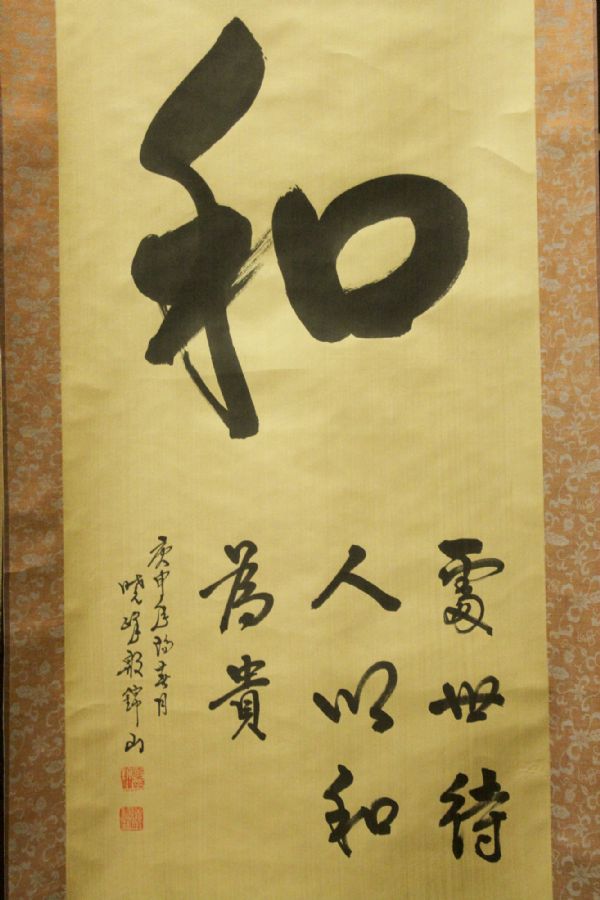 和
處世待
人以和
為貴
庚申年陽春月
曉峰殷錦山